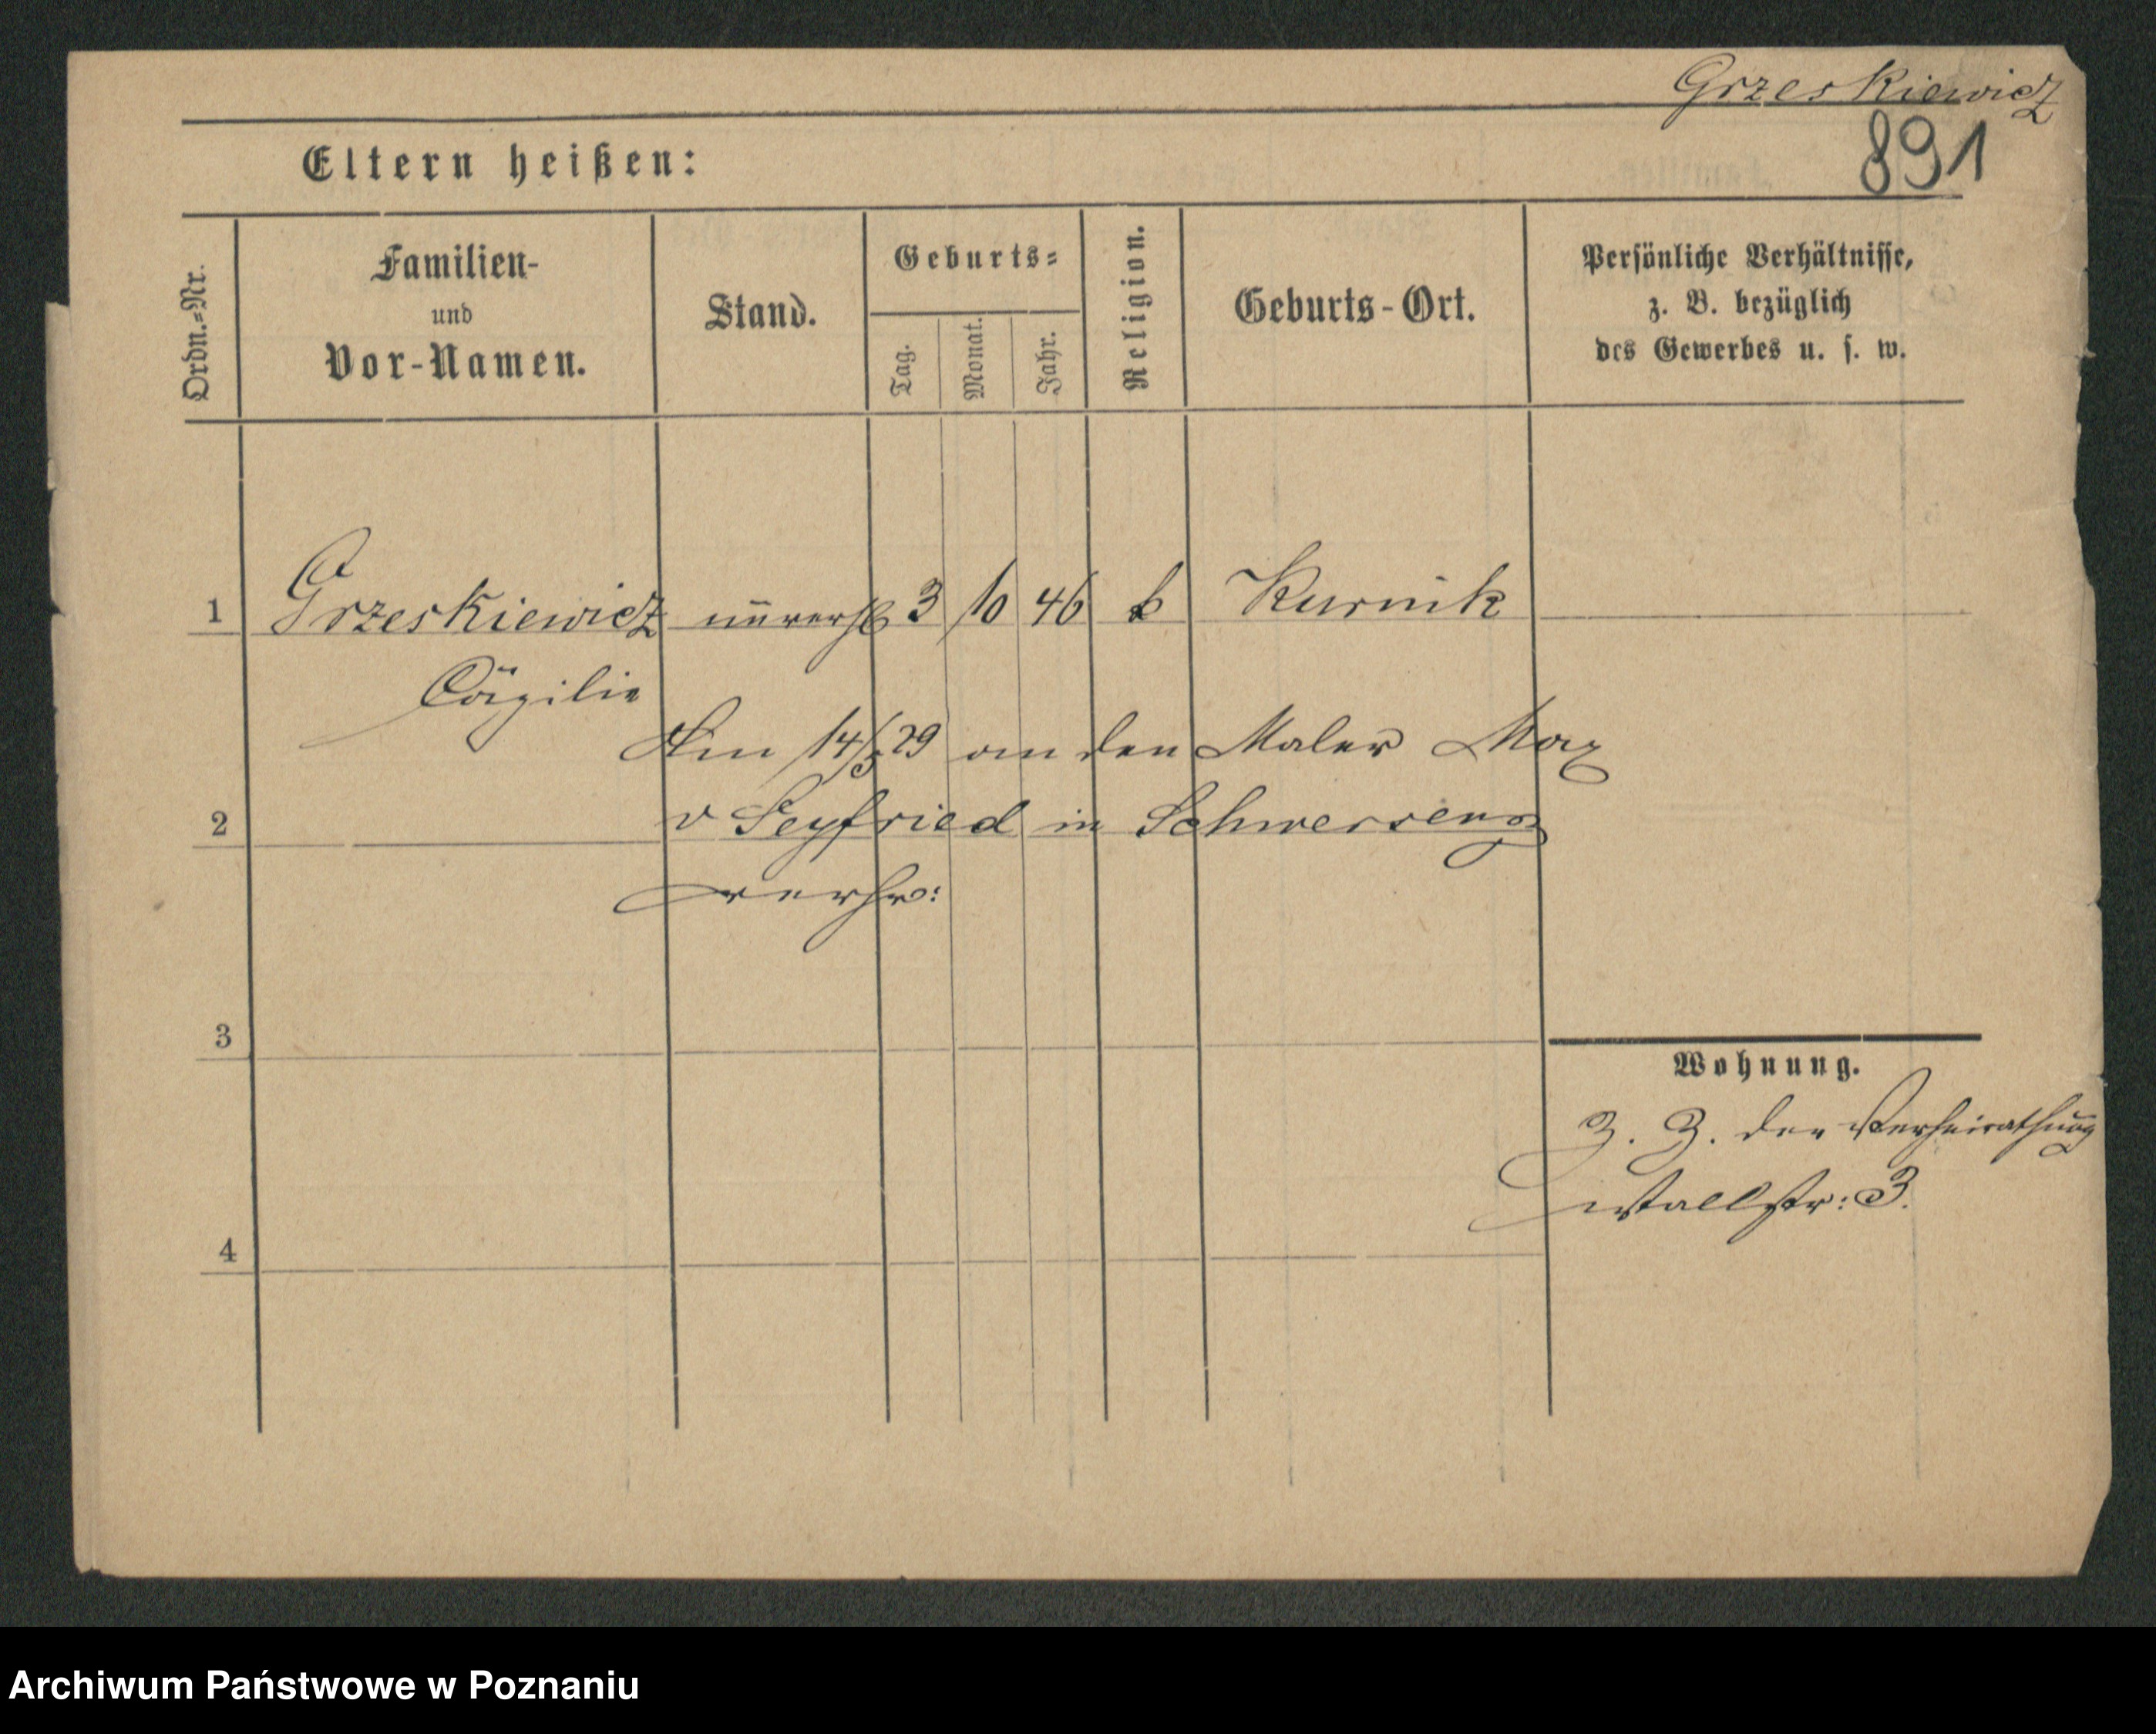 Grzeskiewicz
891
Eltern heißen:
Ordn.=Nr.
Familien-
und
Vor-Namen.
Stand.
Geburts=
Tag.
Monat.
Jahr.
Religion.
Geburts-Ort.
Persönliche Verhältnisse,
z. B. bezüglich
des Gewerbes u. s. w.
1 Grzeskiewicz 3 10 46 Kurnik
Cäzilie
Am 14/5 29 an den Maler Max
2 v Seyfried in Schwersenz
verhr:
3
Wohnung.
Z. Z. der Verheirathung
Wallstr: 3.
4
Archiwum Państwowe w Poznaniu